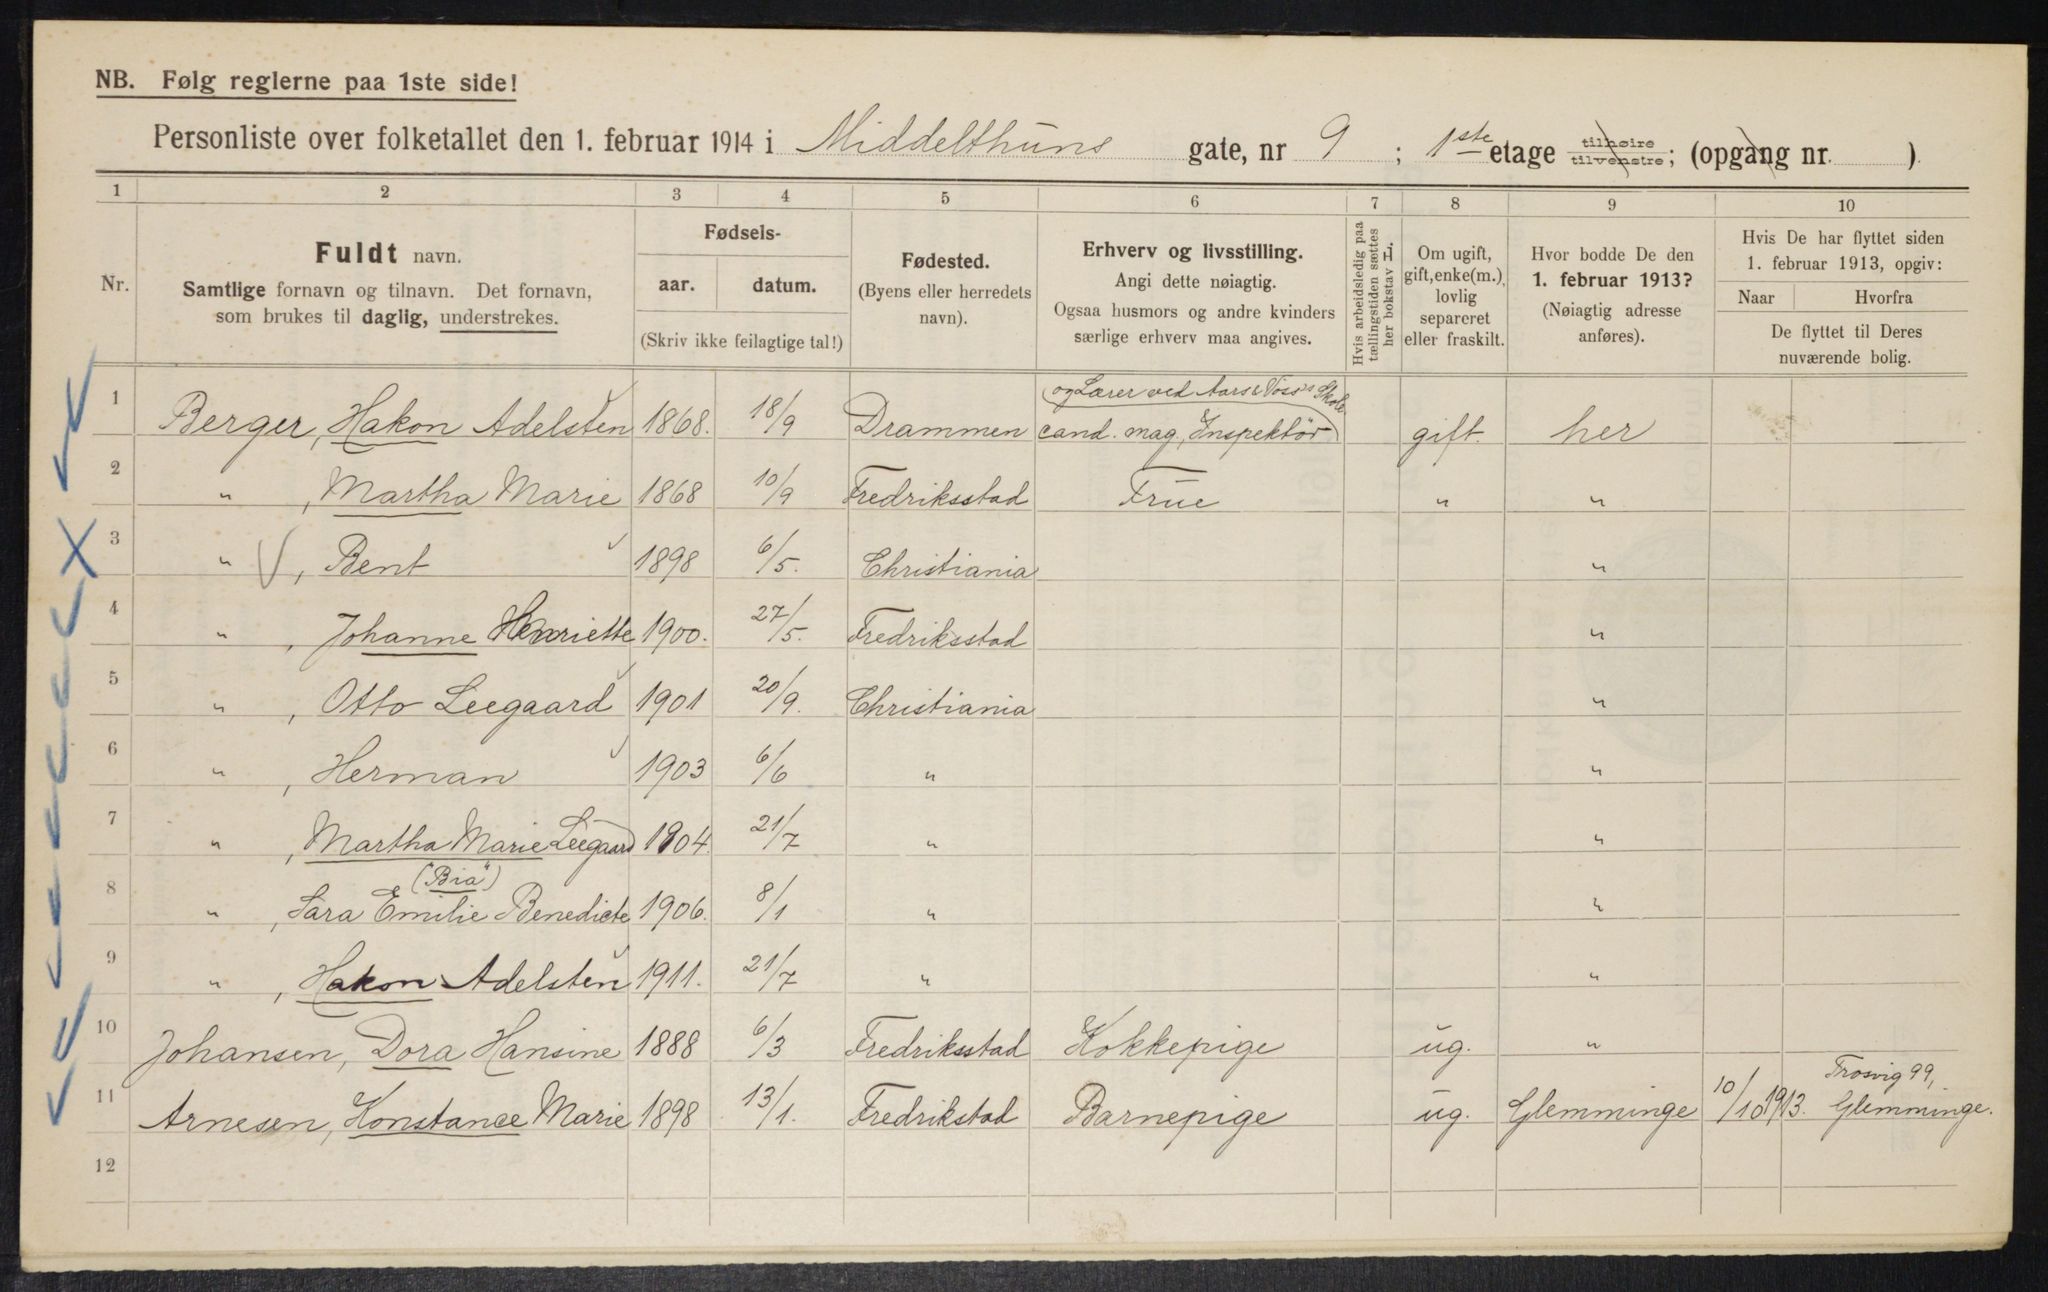 NB. Følg reglerne paa 1ste side!
Personliste over folketallet den 1. februar 1914 i Middelthuns gate, nr 9 ; 1ste etage tilhøire tilvenstre; (opgang nr. ).
1 2 3 4 5 6 7 8 9 10
Nr.
Fuldt navn.
Samtlige fornavn og tilnavn. Det fornavn,
som brukes til daglig, understrekes.
Fødsels-
aar. datum.
(Skriv ikke feilagtige tal!)
Fødested.
(Byens eller herredets
navn).
Erhverv og livsstilling.
Angi dette nøiagtig.
Ogsaa husmors og andre kvinders
særlige erhverv maa angives.
Hvis arbeidsledig paa
tællingstiden sættes
her bokstav L.
Om ugift,
gift, enke(m.),
lovlig
separeret
eller fraskilt.
Hvor bodde De den
1. februar 1913?
(Nøiagtig adresse
anføres).
Hvis De har flyttet siden
1. februar 1913, opgiv:
Naar Hvorfra
De flyttet til Deres
nuværende bolig.
og Lærer ved Aars & Voss's Skole
1 Berger, Hakon Adelsten 1868. 18/9 Drammen cand. mag., Inspektør gift. her
2 " , Martha Marie 1868 10/9 Fredriksstad Frue " "
3 " , Bent 1898 6/5. Christiania "
4 " , Johanne Henriette 1900. 27/5. Fredriksstad "
5 " , Otto Leegaard 1901 20/9. Christiania "
6 " , Herman 1903 6/6 " "
7 " , Martha Marie Leegaard 1904. 21/7 " "
("Bia")
8 " , Sara Emilie Benedicte 1906. 8/1 " "
9 " , Hakon Adelsten 1911. 21/7 " "
10 Johansen, Dora Hansine 1888 6/3 Fredriksstad Kokkepige ug. "
11 Arnesen, Konstance Marie 1898 13/1. Fredrikstad Barnepige ug. Glemminge 10/10 1913. Trosvig 99,
Glemminge.
12